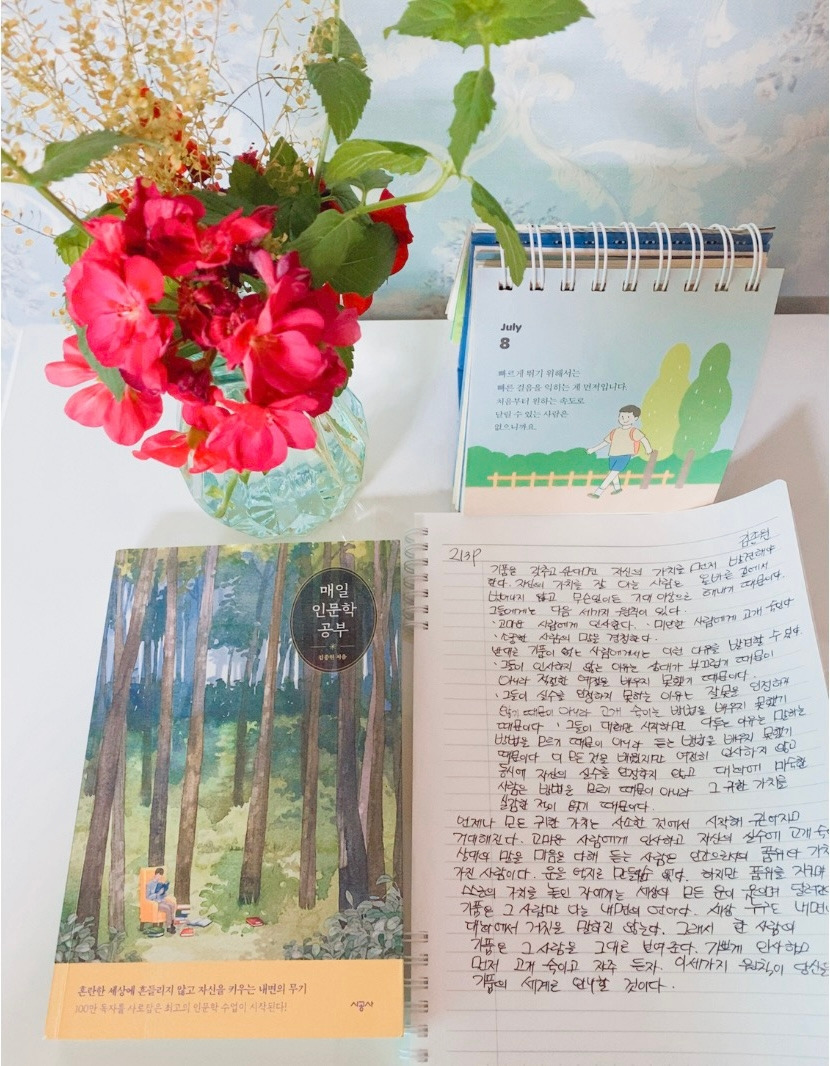 July
8
빠르게 뛰기 위해서는
빠른 걸음을 익히는 게 먼저입니다.
처음부터 원하는 속도로
달릴 수 있는 사람은
없으니까요.
매일
인문학
공부
김종원 지음
혼란한 세상에 흔들리지 않고 자신을 키우는 내면의 무기
100만 독자를 사로잡은 최고의 인문학 수업이 시작된다!
시공사
김종원
213P
기품을 갖추고 싶다면 자신의 가치를 먼저 발견해야
한다. 자신의 가치를 잘 아는 사람은
않고 무슨일이든 기대 이상으로 해내기 때문이다.
그들에게는 다음 세가지 원칙이 있다.
· 고마운 사람에게 인사한다. · 미안한 사람에게 고개 숙인다
· 소중한 사람의 말을 경청한다.
반대로 기품이 없는 사람에게서는 이런 이유를 발견할 수 있다.
· 그들이 인사하지 않는 이유는 상대가 부끄럽기 때문이
아니라 적절한 예절을 배우지 못했기 때문이다.
· 그들이 실수를 인정하지 못하는 이유는 잘못을 인정하지
않기 때문이 아니라 고개 숙이는 방법을 배우지 못했기
때문이다. · 그들이 대화만 시작하면 다투는 이유는 말하는
방법을 모르기 때문이 아니라 듣는 방법을 배우지 못했기
때문이다. 이 모든 것을 배웠지만 여전히 인사하지 않고
동시에 자신의 실수를 인정하지 않고 대화에 미숙한
사람은 방법을 모르기 때문이 아니라 그 귀한 가치를
실감한 적이 없기 때문이다.
언제나 모든 귀한 가치는 사소한 것에서 시작해
거대해진다. 고마운 사람에게 인사하고 자신의 실수에 고개 숙
상대의 말을 마음을 다해 듣는 사람은 인간으로서의 품위와 가치
가진 사람이다. 운을 억지로 만들 수 없다. 하지만 품위를 가지며
스스로의 가치를 높인 자에게는 세상의 모든 운이
기품은 그 사람만 아는 내면의 언어이다. 세상 누구도 내면
대화에서 거짓을 말하진 않는다. 그래서 한 사람의
기품은 그 사람을 그대로 보여준다. 기쁘게 인사하고
먼저 고개 숙이고 자주 듣자. 이 세가지 원칙이 당신을
기품의 세계로 안내할 것이다.